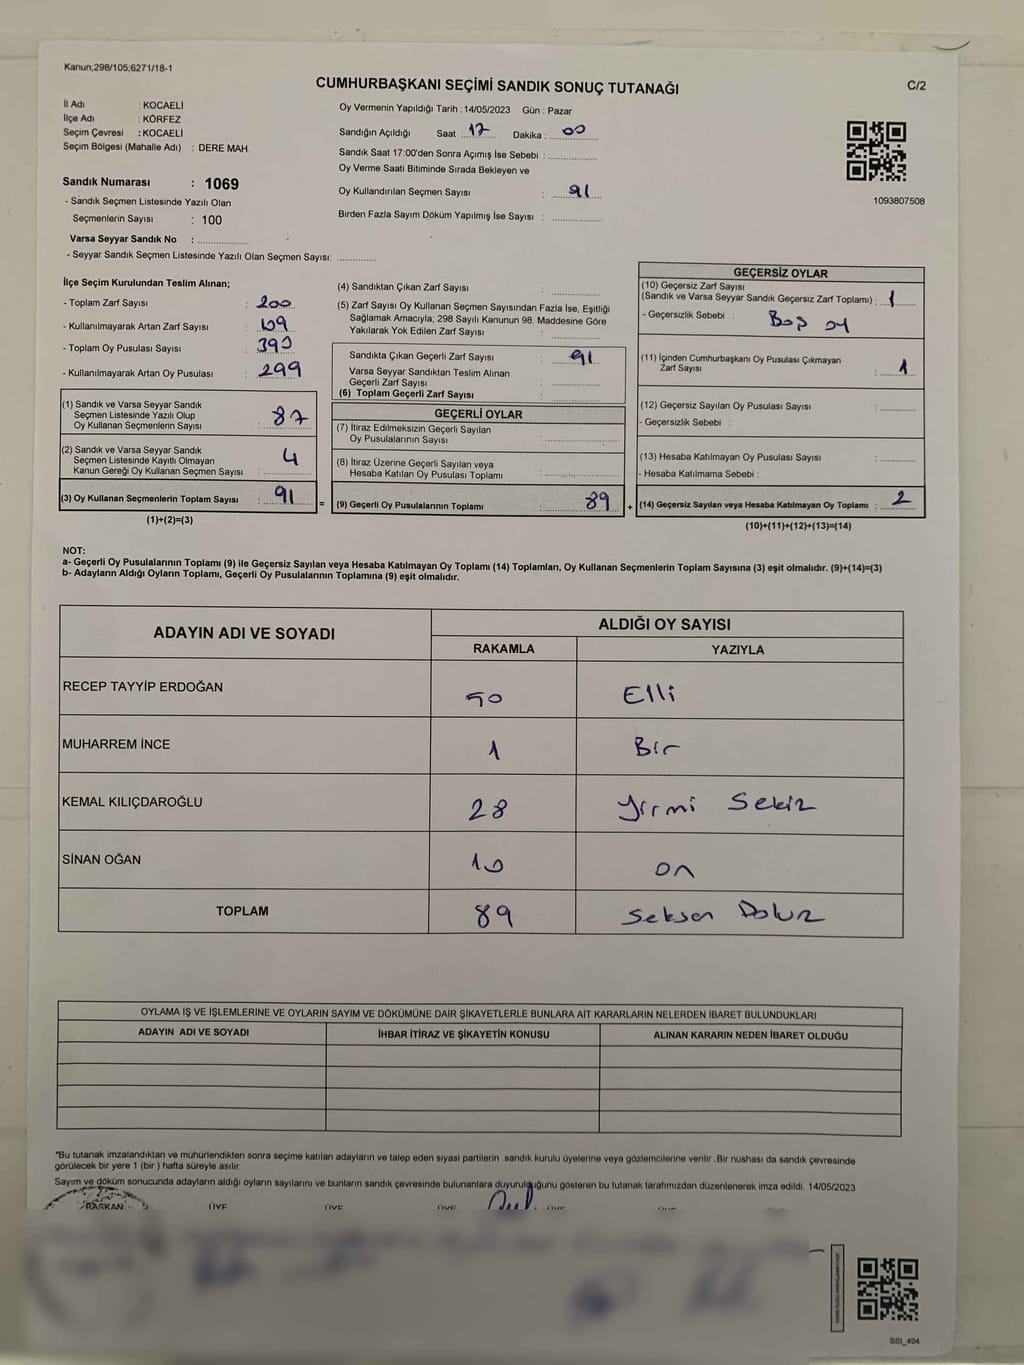 Kanun;298/105;6271/18-1
CUMHURBAŞKANI SEÇİMİ SANDIK SONUÇ TUTANAĞI
C/2
İl Adı : KOCAELİ
İlçe Adı : KÖRFEZ
Seçim Çevresi : KOCAELİ
Seçim Bölgesi (Mahalle Adı) : DERE MAH.
Sandık Numarası : 1069
- Sandık Seçmen Listesinde Yazılı Olan
Seçmenlerin Sayısı : 100
Varsa Seyyar Sandık No :
- Seyyar Sandık Seçmen Listesinde Yazılı Olan Seçmen Sayısı:
Oy Vermenin Yapıldığı Tarih :14/05/2023 Gün : Pazar
Sandığın Açıldığı Saat : 17 Dakika : 00
Sandık Saat 17:00'den Sonra Açımış İse Sebebi :
Oy Verme Saati Bitiminde Sırada Bekleyen ve
Oy Kullandırılan Seçmen Sayısı : 91
Birden Fazla Sayım Döküm Yapılmış İse Sayısı :
1093807508
İlçe Seçim Kurulundan Teslim Alınan;
- Toplam Zarf Sayısı : 200
- Kullanılmayarak Artan Zarf Sayısı : 109
- Toplam Oy Pusulası Sayısı : 390
- Kullanılmayarak Artan Oy Pusulası : 299
(1) Sandık ve Varsa Seyyar Sandık
Seçmen Listesinde Yazılı Olup
Oy Kullanan Seçmenlerin Sayısı : 87
(2) Sandık ve Varsa Seyyar Sandık
Seçmen Listesinde Kayıtlı Olmayan
Kanun Gereği Oy Kullanan Seçmen Sayısı : 4
(3) Oy Kullanan Seçmenlerin Toplam Sayısı : 91 =
(1)+(2)=(3)
(4) Sandıktan Çıkan Zarf Sayısı :
(5) Zarf Sayısı Oy Kullanan Seçmen Sayısından Fazla İse, Eşitliği
Sağlamak Amacıyla; 298 Sayılı Kanunun 98. Maddesine Göre
Yakılarak Yok Edilen Zarf Sayısı :
Sandıkta Çıkan Geçerli Zarf Sayısı : 91
Varsa Seyyar Sandıktan Teslim Alınan
Geçerli Zarf Sayısı :
(6) Toplam Geçerli Zarf Sayısı :
GEÇERLİ OYLAR
(7) İtiraz Edilmeksizin Geçerli Sayılan
Oy Pusulalarının Sayısı :
(8) İtiraz Üzerine Geçerli Sayılan veya
Hesaba Katılan Oy Pusulası Toplamı :
(9) Geçerli Oy Pusulalarının Toplamı : 89 +
GEÇERSİZ OYLAR
(10) Geçersiz Zarf Sayısı
(Sandık ve Varsa Seyyar Sandık Geçersiz Zarf Toplamı) : 1
- Geçersizlik Sebebi : Boş oy
(11) İçinden Cumhurbaşkanı Oy Pusulası Çıkmayan
Zarf Sayısı : 1
(12) Geçersiz Sayılan Oy Pusulası Sayısı :
- Geçersizlik Sebebi :
(13) Hesaba Katılmayan Oy Pusulası Sayısı :
- Hesaba Katılmama Sebebi :
(14) Geçersiz Sayılan veya Hesaba Katılmayan Oy Toplamı : 2
(10)+(11)+(12)+(13)=(14)
NOT:
a- Geçerli Oy Pusulalarının Toplamı (9) ile Geçersiz Sayılan veya Hesaba Katılmayan Oy Toplamı (14) Toplamları, Oy Kullanan Seçmenlerin Toplam Sayısına (3) eşit olmalıdır. (9)+(14)=(3)
b- Adayların Aldığı Oyların Toplamı, Geçerli Oy Pusulalarının Toplamına (9) eşit olmalıdır.
ADAYIN ADI VE SOYADI
ALDIĞI OY SAYISI
RAKAMLA YAZIYLA
RECEP TAYYİP ERDOĞAN 50 Elli
MUHARREM İNCE 1 Bir
KEMAL KILIÇDAROĞLU 28 Yirmi Sekiz
SİNAN OĞAN 10 on
TOPLAM 89 Seksen Dokuz
OYLAMA İŞ VE İŞLEMLERİNE VE OYLARIN SAYIM VE DÖKÜMÜNE DAİR ŞİKAYETLERLE BUNLARA AİT KARARLARIN NELERDEN İBARET BULUNDUKLARI
ADAYIN ADI VE SOYADI İHBAR İTİRAZ VE ŞİKAYETİN KONUSU ALINAN KARARIN NEDEN İBARET OLDUĞU
*Bu tutanak imzalandıktan ve mühürlendikten sonra seçime katılan adayların ve talep eden siyasi partilerin sandık kurulu üyelerine veya gözlemcilerine verilir .Bir nüshası da sandık çevresinde
görülecek bir yere 1 (bir ) hafta süreyle asılır.
Sayım ve döküm sonucunda adayların aldığı oyların sayılarını ve bunların sandık çevresinde bulunanlara duyurulduğunu gösteren bu tutanak tarafımızdan düzenlenerek imza edildi. 14/05/2023
BAŞKAN ÜYE ÜYE ÜYE ÜYE
SSI_404